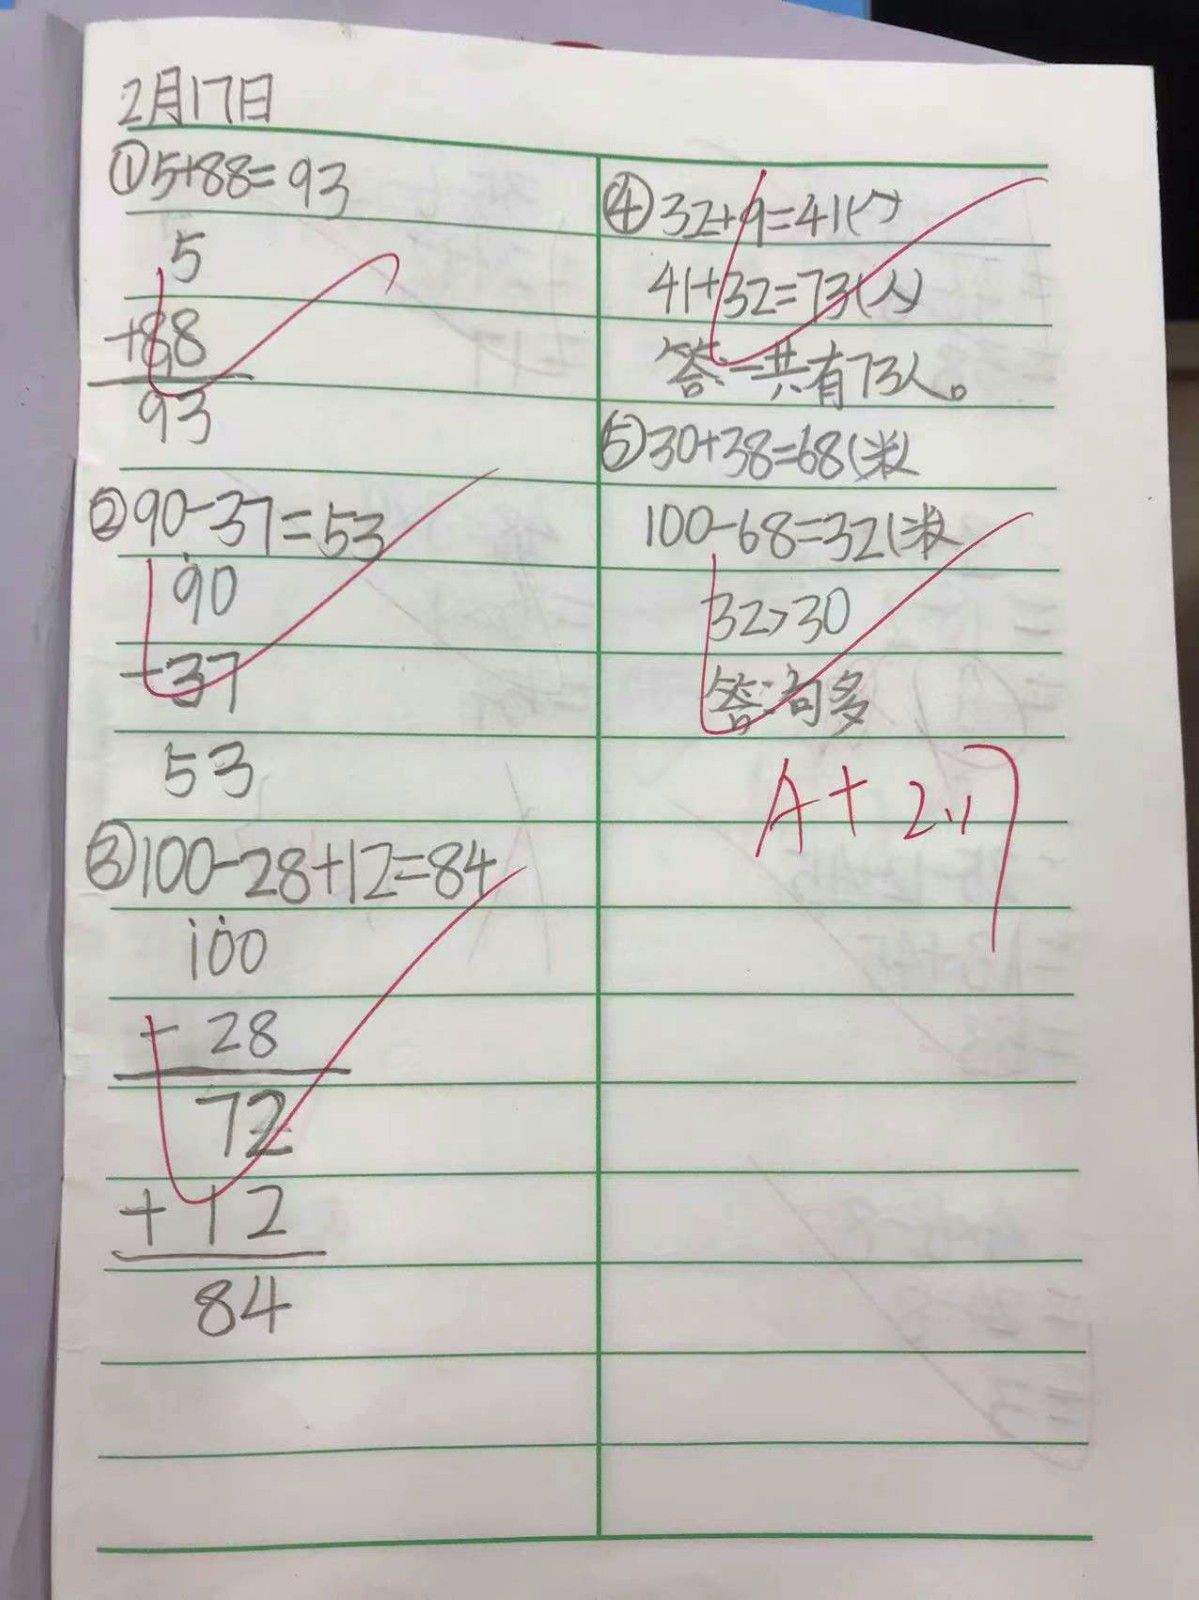 2月17日
①5+88=93
5
+88
93
②90-37=53
90
-37
53
③100-28+12=84
100
- 28
72
+ 12
84
④32+9=41(人)
41+32=73(人)
答:一共有73人。
⑤30+38=68(米
100-68=32(米
32>30
答:句多
A+ 2.17